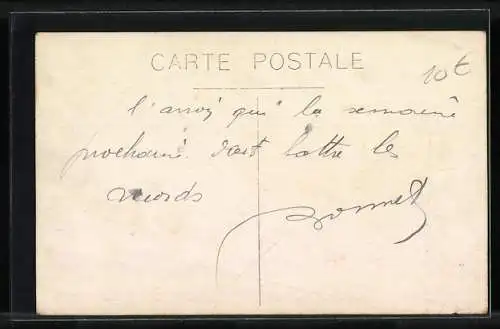 CARTE POSTALE
10€
l'avion qui la semaine
prochaine doit battre les
records
Bonnet